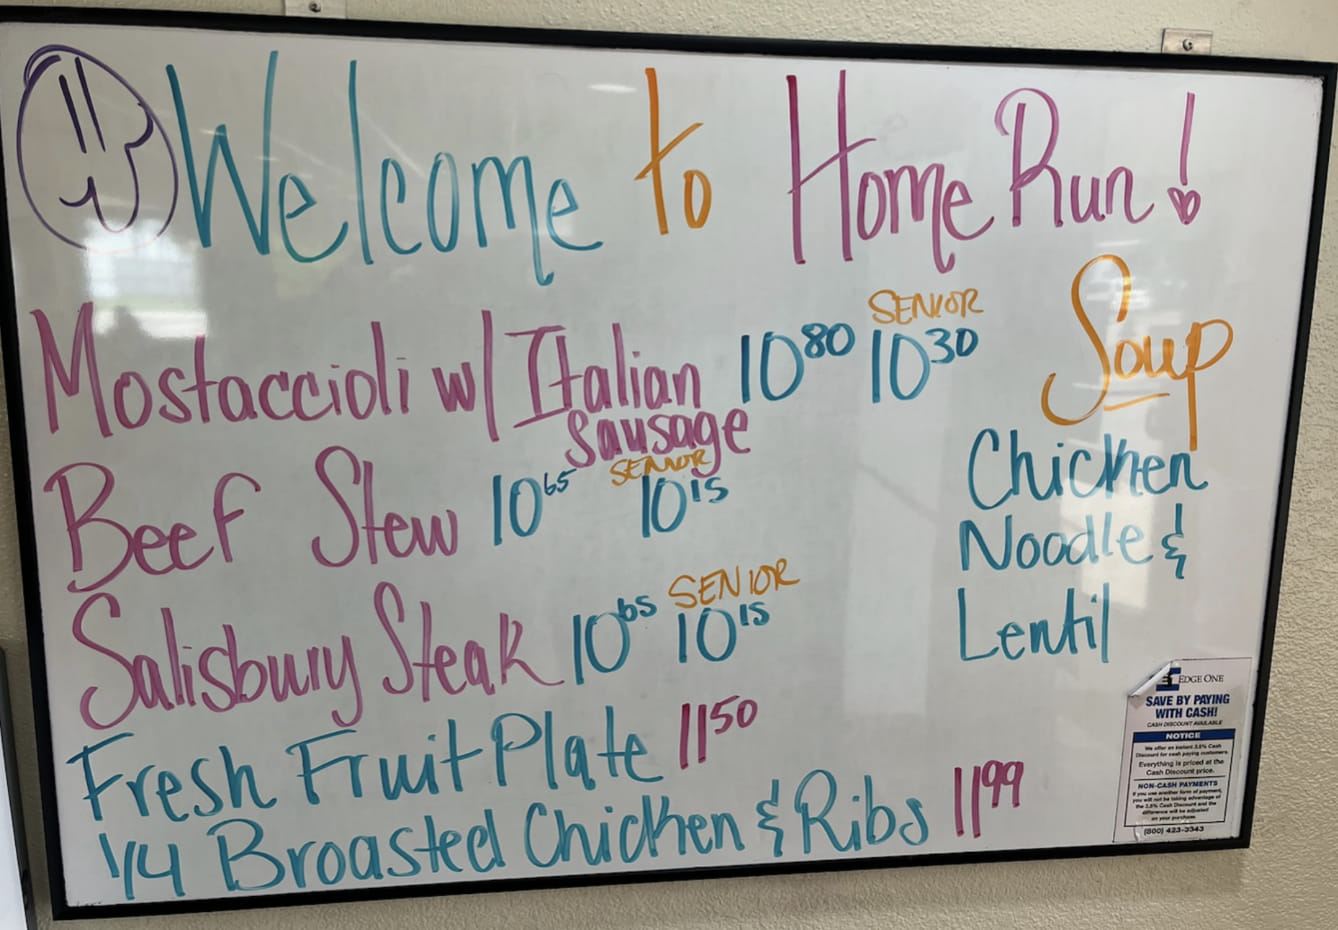 Welcome to Home Run!
SENIOR
Mostaccioli w/ Italian 10 80 10 30
Sausage
SENIOR
Beef Stew 10 65 10 15
SENIOR
Salisbury Steak 10 65 10 15
Fresh Fruit Plate 11 50
1/4 Broasted Chicken & Ribs 11 99
Soup
Chicken
Noodle &
Lentil
EDGE ONE
SAVE BY PAYING
WITH CASH!
CASH DISCOUNT AVAILABLE
NOTICE
We offer an instant 3.5% Cash
Discount for cash paying customers.
Everything is priced at the
Cash Discount price.
NON-CASH PAYMENTS
If you use another form of payment,
you will not be taking advantage of
the 3.5% Cash Discount and the
difference will be adjusted
on your purchase.
(800) 423-3343